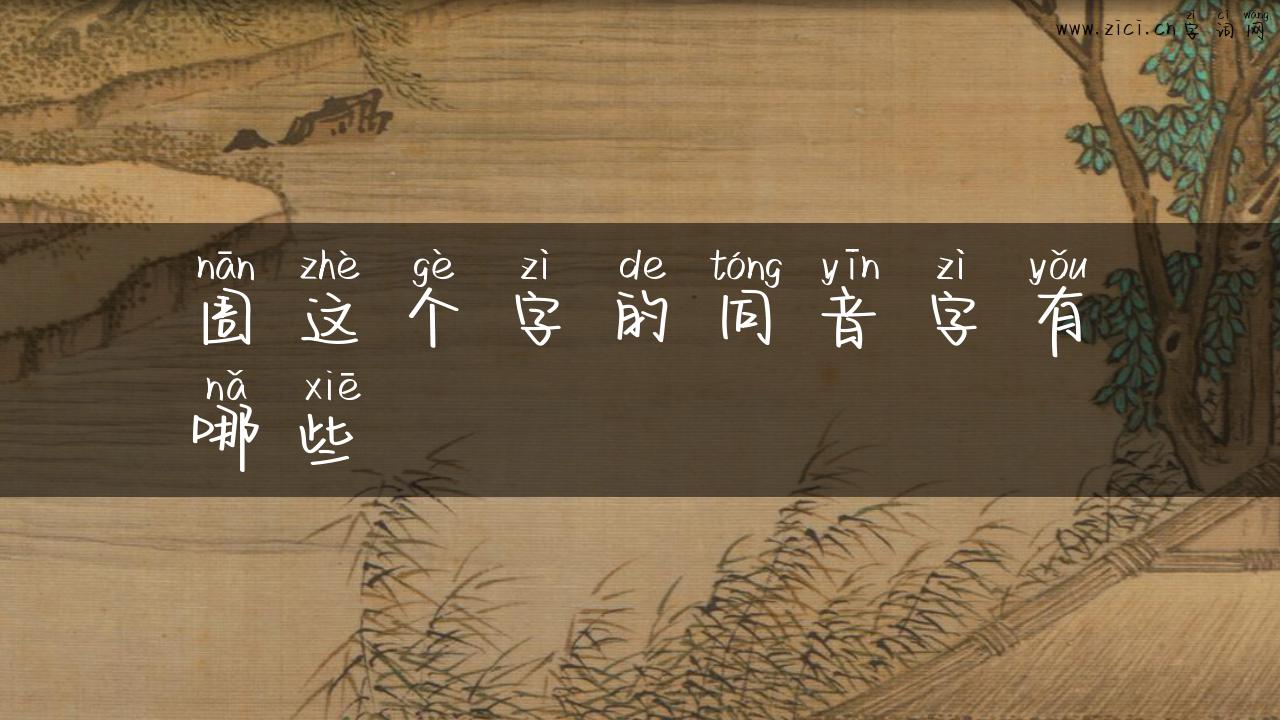 www.zici.cn zì cí wǎng
字词网
nān zhè gè zì de tóng yīn zì yǒu
这个字的同音字有
nǎ xiē
哪些